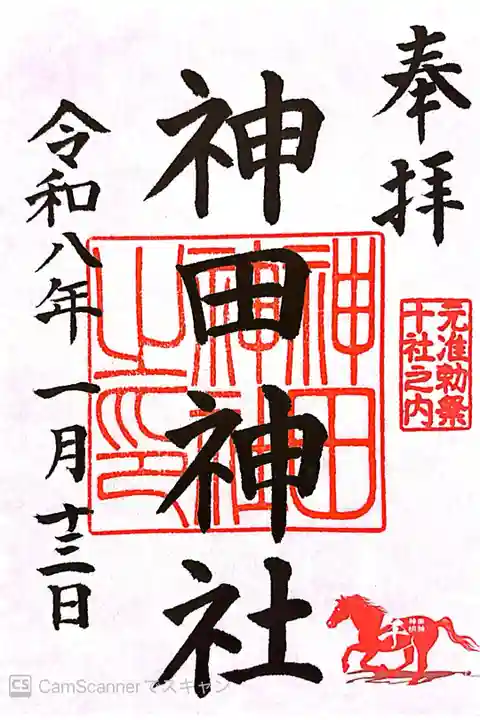 奉拝
元准勅祭
十社之内
神田神社
神田
神社
之印
令和八年一月十三日
午
CS CamScannerでスキャン